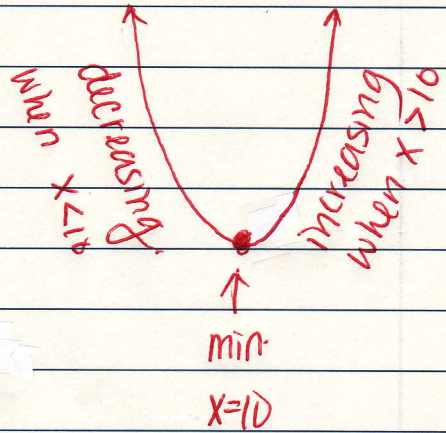 decreasing
when x<10
increasing
when x>10
min.
x=10